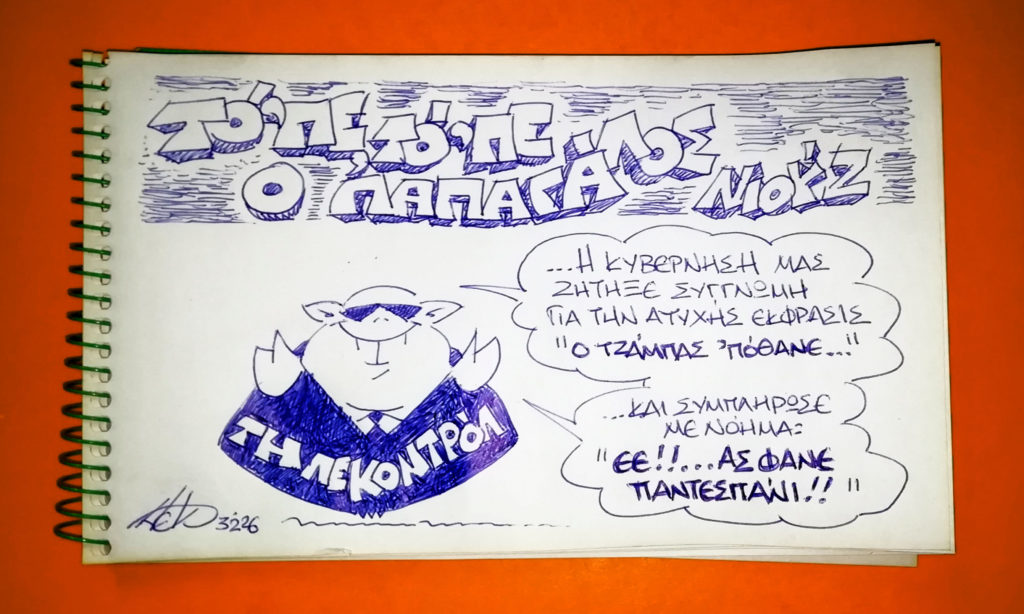 ΤΌ 'ΠΕ, ΤΌ 'ΠΕ
Ο ΠΑΠΑΓΆΛΟΣ ΝΙΟΥΖ
...Η ΚΥΒΕΡΝΗΣΗ ΜΑΣ
ΖΗΤΗΞΕ ΣΥΓΓΝΩΜΗ
ΓΙΑ ΤΗΝ ΑΤΥΧΗΣ ΕΚΦΡΑΣΙΣ
"Ο ΤΖΑΜΠΑΣ 'ΠΌΘΑΝΕ..."
...ΚΑΙ ΣΥΜΠΛΗΡΩΣΕ
ΜΕ ΝΟΗΜΑ:
"ΕΕ!!...ΑΣ ΦΑΝΕ
ΠΑΝΤΕΣΠΆΝΙ!!"
ΤΗΛΕΚΟΝΤΡΌΛ
3'2'26